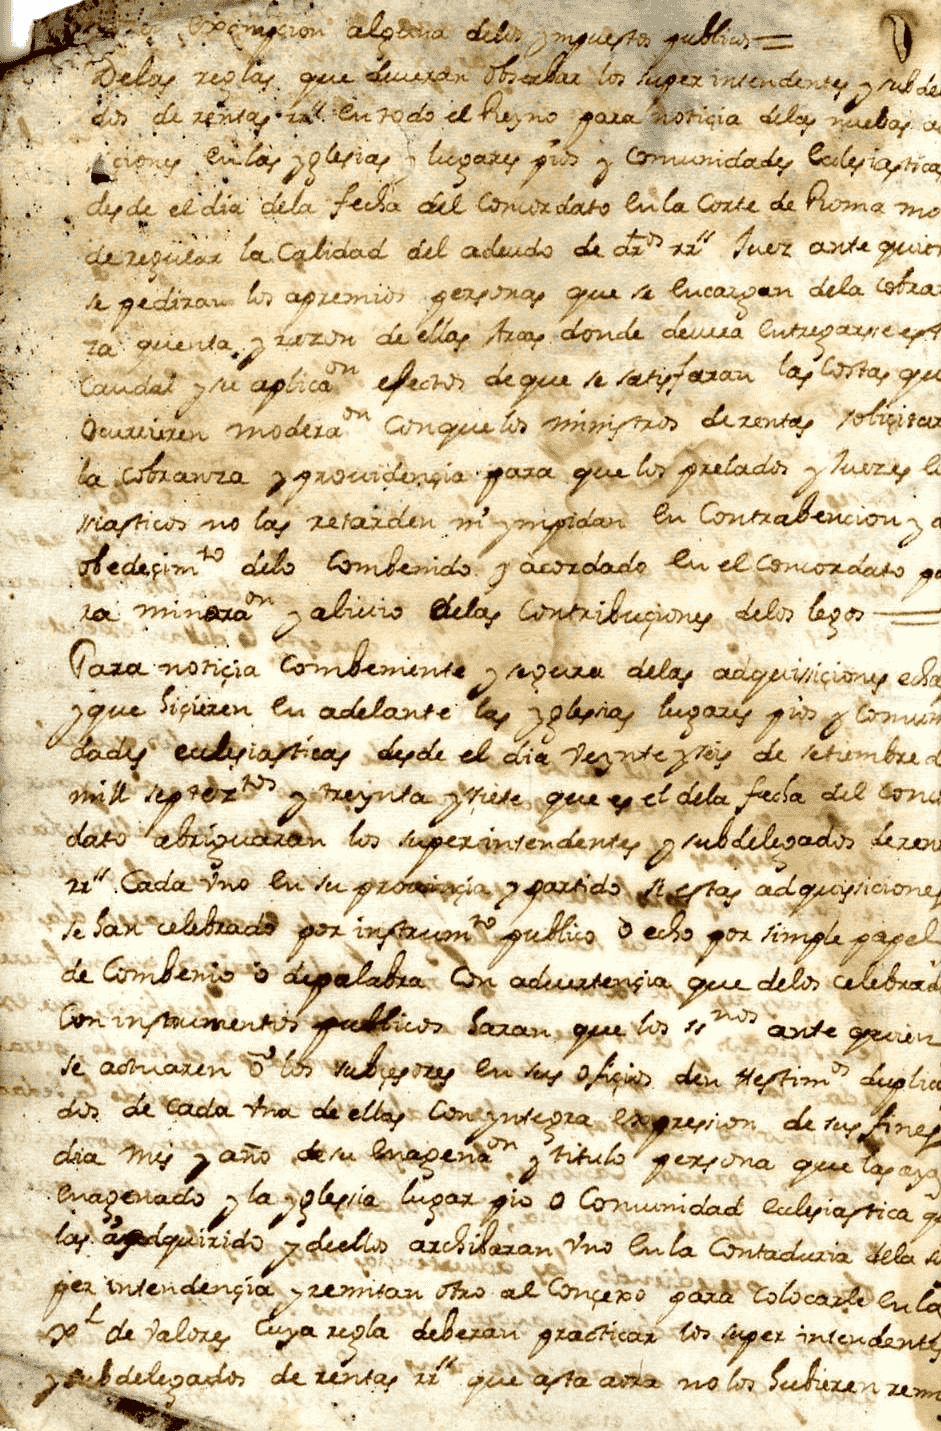 exempcion alguna delos ympuestos publicos =
Delas reglas que deveran obserbar los super intendentes y subdele
dos de rentas rr.s en todo el Reyno para notiçia delas nuebas a
çiones en las yglesias y lugares pios y Comunidades eclesiasticas
desde el dia dela fecha del Concordato en la Corte de Roma mo
de regular la Calidad del adeudo de dr.os rr.s Juez ante quien
se pediran los apremios personas que se encargan dela Cobran
za quenta y razon de ellas Arcas donde devera entregarse est
Caudal y su aplica.on efectos de que se satisfaran las Costas que
Ocurrieren modera.on Con que los ministros de rentas soliçitar
la Cobranza y providençia para que los prelados y Juezes ecle
siasticos no las retarden ni ympidan en Contrabencion y
obedeçim.to delo Combenido y acordado en el Concordato pa
ra minora.on y alivio delas Contribuçiones delos legos =
Para notiçia Combeniente y segura delas adquisiçiones echas
y que hiçieren en adelante las yglesias lugares pios y Comuni
dades eclesiasticas desde el dia veynte y seis de setiembre de
mill septez.tos y treynta y siete que es el dela fecha del Conco
dato abriguaran los super intendentes y subdelegados de ren
rr.s Cada vno en su provinçia y partido si estas adquissiciones
se han celebrado por instrum.to publico o echo por simple papel
de Combenio o de palabra Con advertençia que delos celebrad
Con instrumentos publicos haran que los ss.nos ante quien
se actuaren o los subçesores en sus ofiçios den testim.os duplica
dos de Cada vna de ellas Con yntegra expresion de sus fines
dia mes y año de su enagena.on y titulo persona que las aya
enagenado y la yglesia lugar pio o Comunidad eclesiastica q
las adquirido y de ellos archibaran vno en la Contaduria dela su
per intendençia y remitan otro al Conçexo para Colocarle en la
de valores Cuya regla deberan practicar los super intendentes
y subdelegados de rentas rr.s que asta aora no los hubieren remi